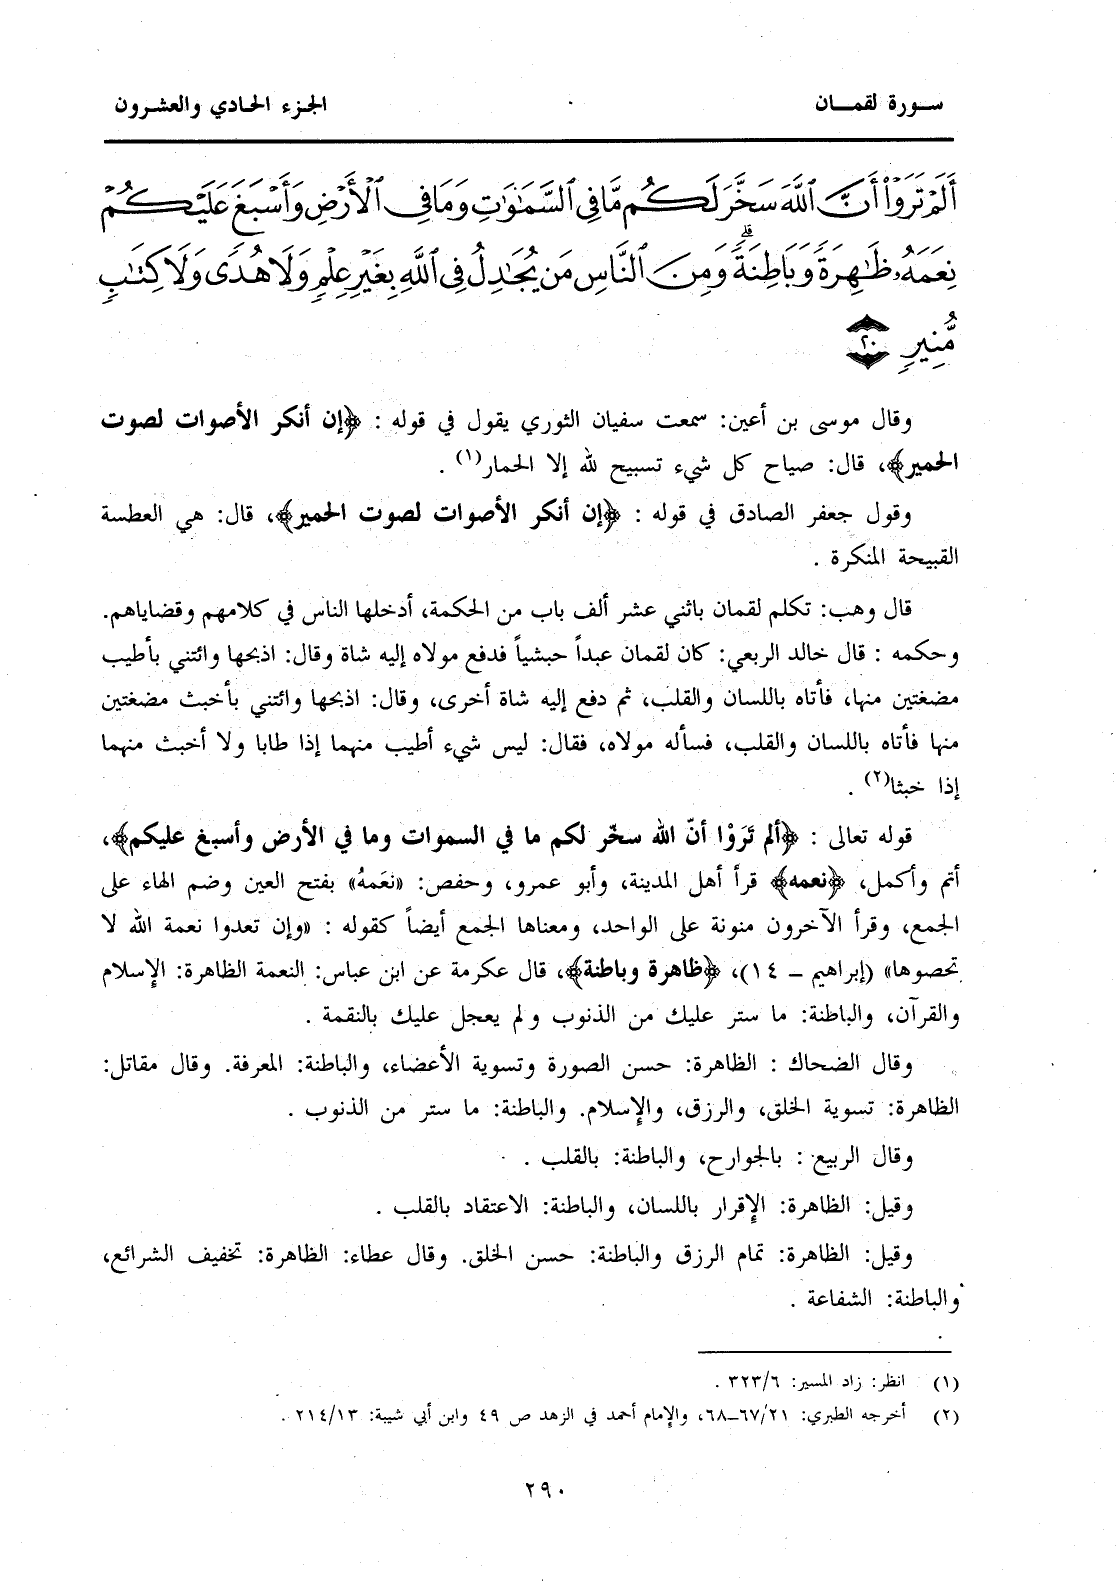 سورة لقمان
الجزء الحادي والعشرون
أَلَمْ تَرَوْا۟ أَنَّ ٱللَّهَ سَخَّرَ لَكُم مَّا فِى ٱلسَّمَٰوَٰتِ وَمَا فِى ٱلْأَرْضِ وَأَسْبَغَ عَلَيْكُمْ
نِعَمَهُۥ ظَٰهِرَةً وَبَاطِنَةً ۗ وَمِنَ ٱلنَّاسِ مَن يُجَٰدِلُ فِى ٱللَّهِ بِغَيْرِ عِلْمٍ وَلَا هُدًى وَلَا كِتَٰبٍ
مُّنِيرٍ ٢٠
وقال موسى بن أعين: سمعت سفيان الثوري يقول في قوله : ﴿إن أنكر الأصوات لصوت
الحمير﴾، قال: صياح كل شيء تسبيح لله إلا الحمار(١) .
وقول جعفر الصادق في قوله : ﴿إن أنكر الأصوات لصوت الحمير﴾، قال: هي العطسة
القبيحة المنكرة .
قال وهب: تكلم لقمان باثني عشر ألف باب من الحكمة، أدخلها الناس في كلامهم وقضاياهم.
وحكمه : قال خالد الربعي: كان لقمان عبداً حبشياً فدفع مولاه إليه شاة وقال: اذبحها وائتني بأطيب
مضغتين منها، فأتاه باللسان والقلب، ثم دفع إليه شاة أخرى، وقال: اذبحها وائتني بأخبث مضغتين
منها فأتاه باللسان والقلب، فسأله مولاه، فقال: ليس شيء أطيب منهما إذا طابا ولا أخبث منهما
إذا خبثا(٢) .
قوله تعالى : ﴿ألم تَرَوْا أنّ الله سخّر لكم ما في السموات وما في الأرض وأسبغ عليكم﴾،
أتم وأكمل، ﴿نعمه﴾ قرأ أهل المدينة، وأبو عمرو، وحفص: «نعَمهُ» بفتح العين وضم الهاء على
الجمع، وقرأ الآخرون منونة على الواحد، ومعناها الجمع أيضاً كقوله : «وإن تعدوا نعمة الله لا
تحصوها» (إبراهيم – ١٤)، ﴿ظاهرة وباطنة﴾، قال عكرمة عن ابن عباس: النعمة الظاهرة: الإسلام
والقرآن، والباطنة: ما ستر عليك من الذنوب ولم يعجل عليك بالنقمة .
وقال الضحاك : الظاهرة: حسن الصورة وتسوية الأعضاء، والباطنة: المعرفة. وقال مقاتل:
الظاهرة: تسوية الخلق، والرزق، والإسلام. والباطنة: ما ستر من الذنوب .
وقال الربيع : بالجوارح، والباطنة: بالقلب .
وقيل: الظاهرة: الإقرار باللسان، والباطنة: الاعتقاد بالقلب .
وقيل: الظاهرة: تمام الرزق والباطنة: حسن الخلق. وقال عطاء: الظاهرة: تخفيف الشرائع،
والباطنة: الشفاعة .
(١) انظر: زاد المسير: ٣٢٣/٦ .
(٢) أخرجه الطبري: ٦٧/٢١–٦٨، والإمام أحمد في الزهد ص ٤٩ وابن أبي شيبة: ٢١٤/١٣ .
٢٩٠